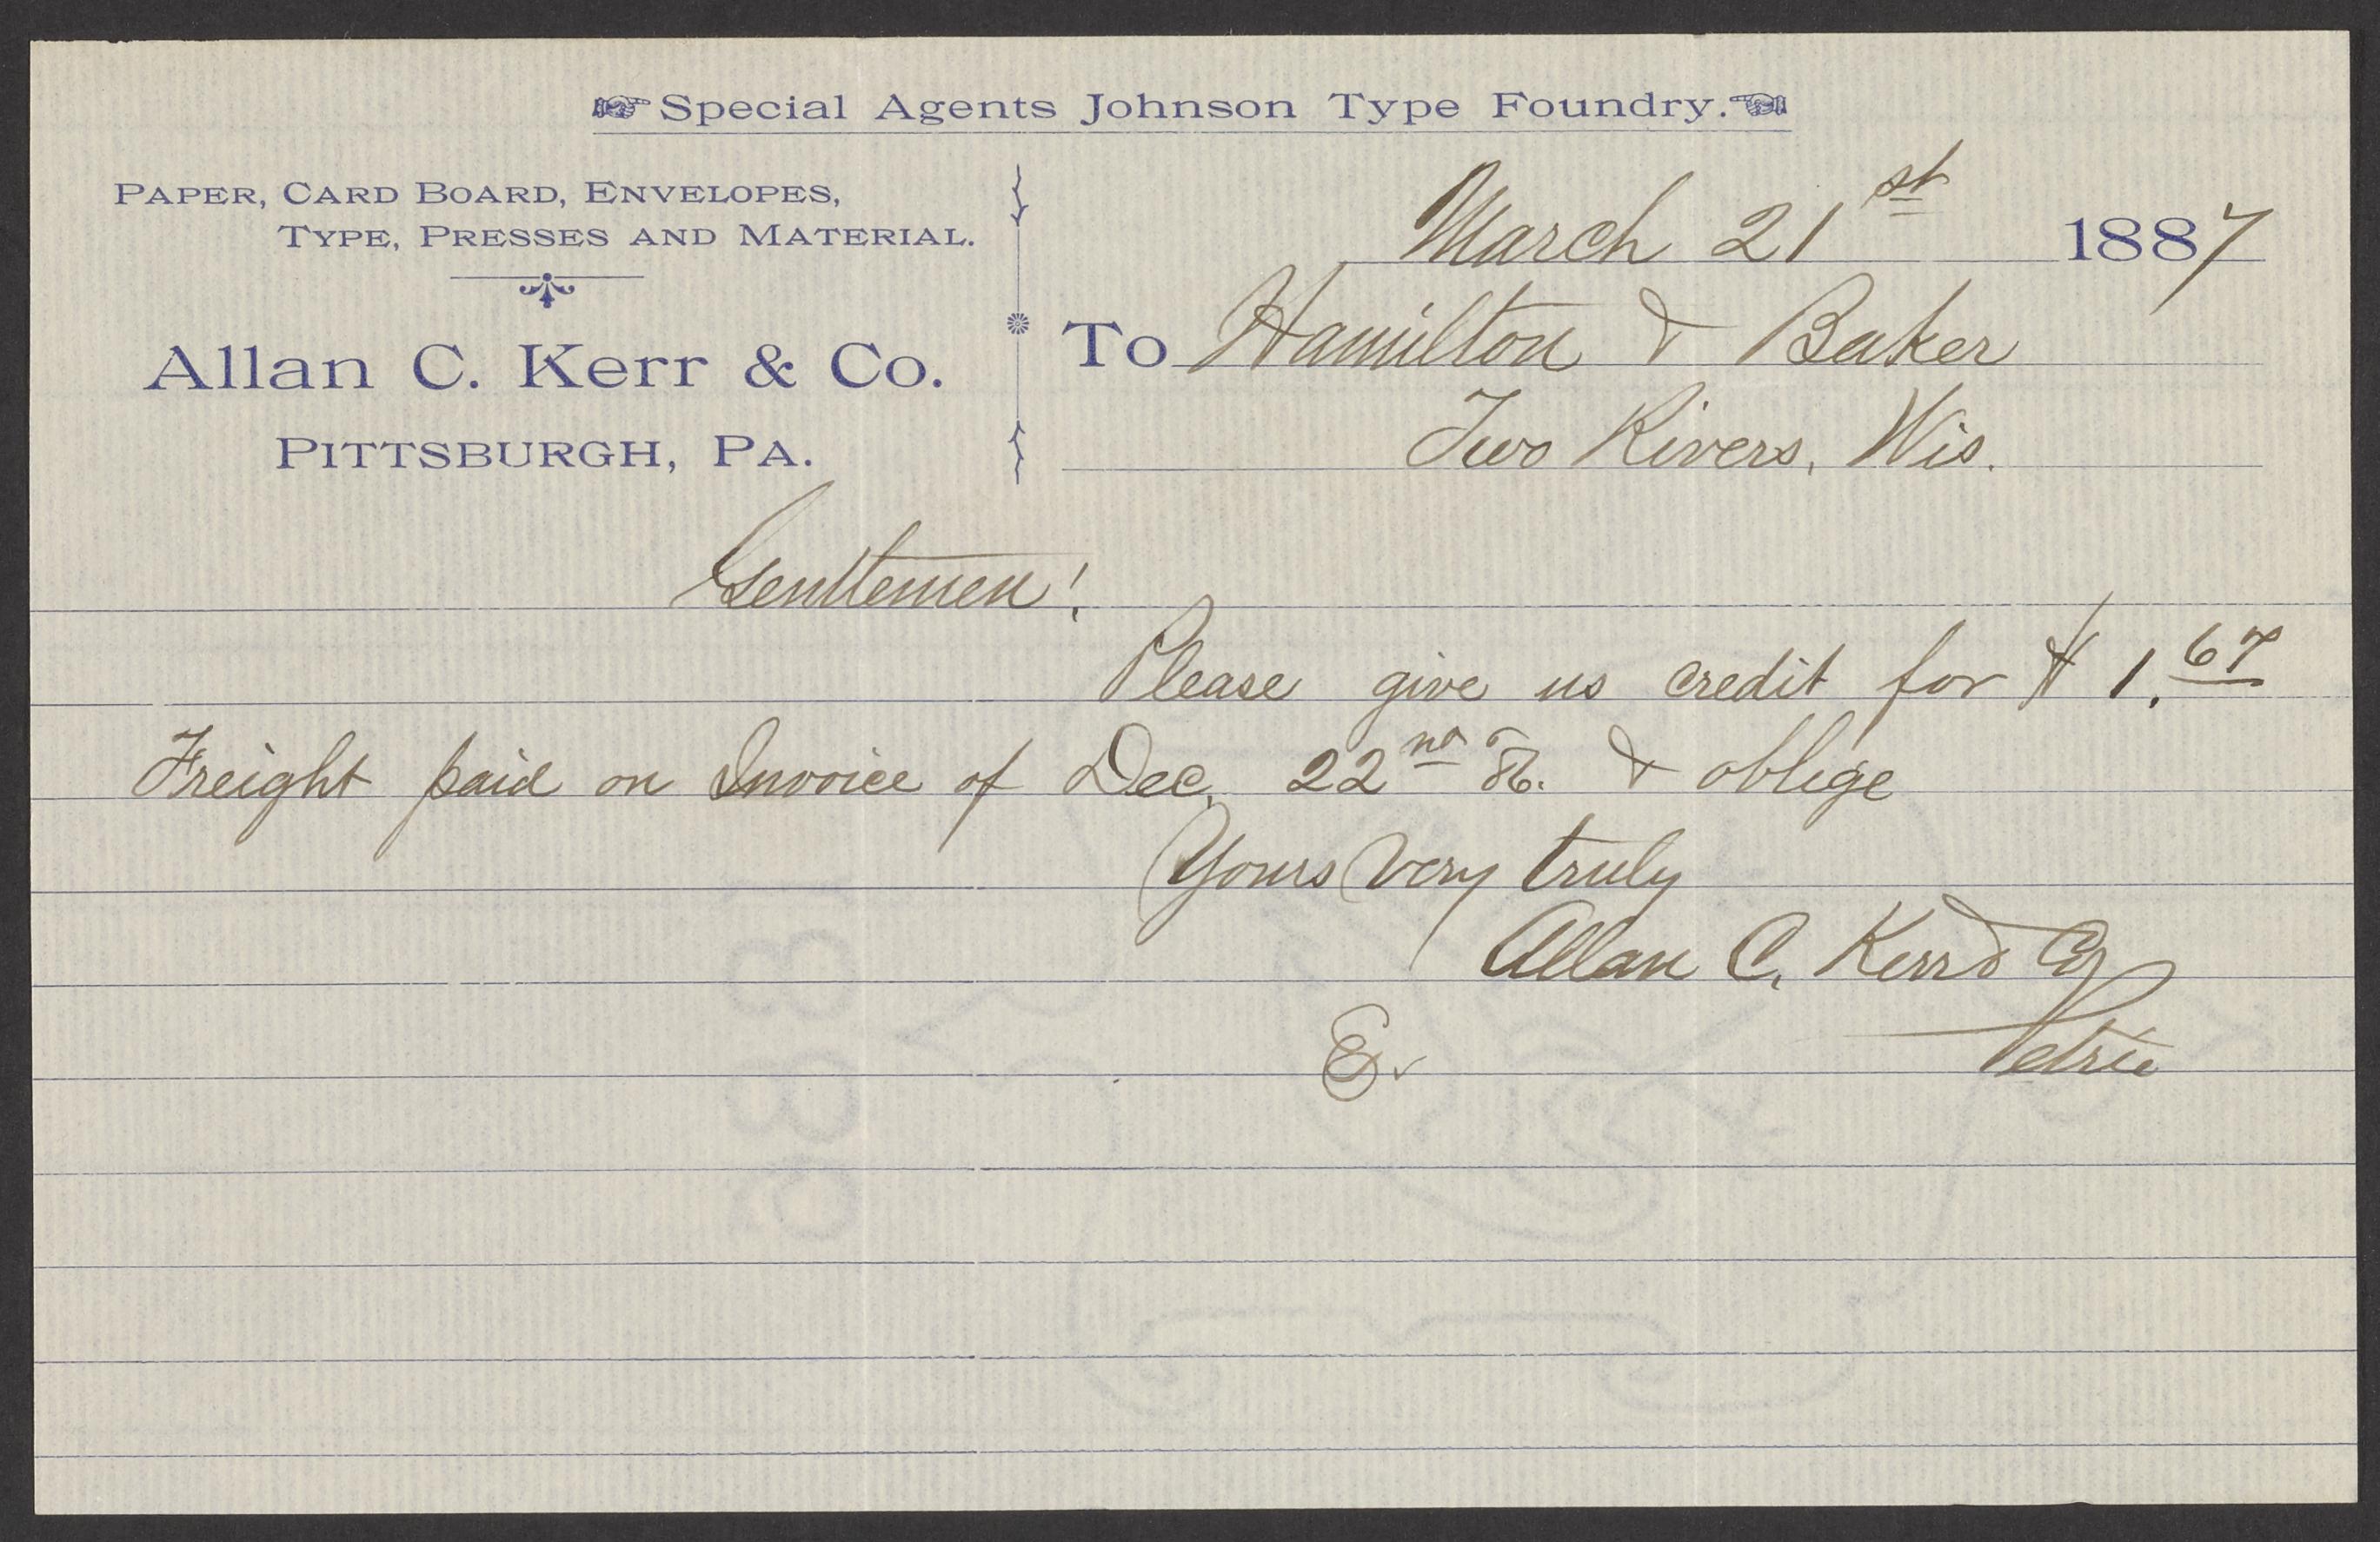 ☞ Special Agents Johnson Type Foundry. ☜
PAPER, CARD BOARD, ENVELOPES,
TYPE, PRESSES AND MATERIAL.
Allan C. Kerr & Co.
PITTSBURGH, PA.
March 21st 1887
To Hamilton & Baker
Two Rivers, Wis.
Gentlemen!
Please give us credit for $1.67
Freight paid on Invoice of Dec. 22nd 86. & oblige
Yours Very truly
Allan C. Kerr & Co
Petrie